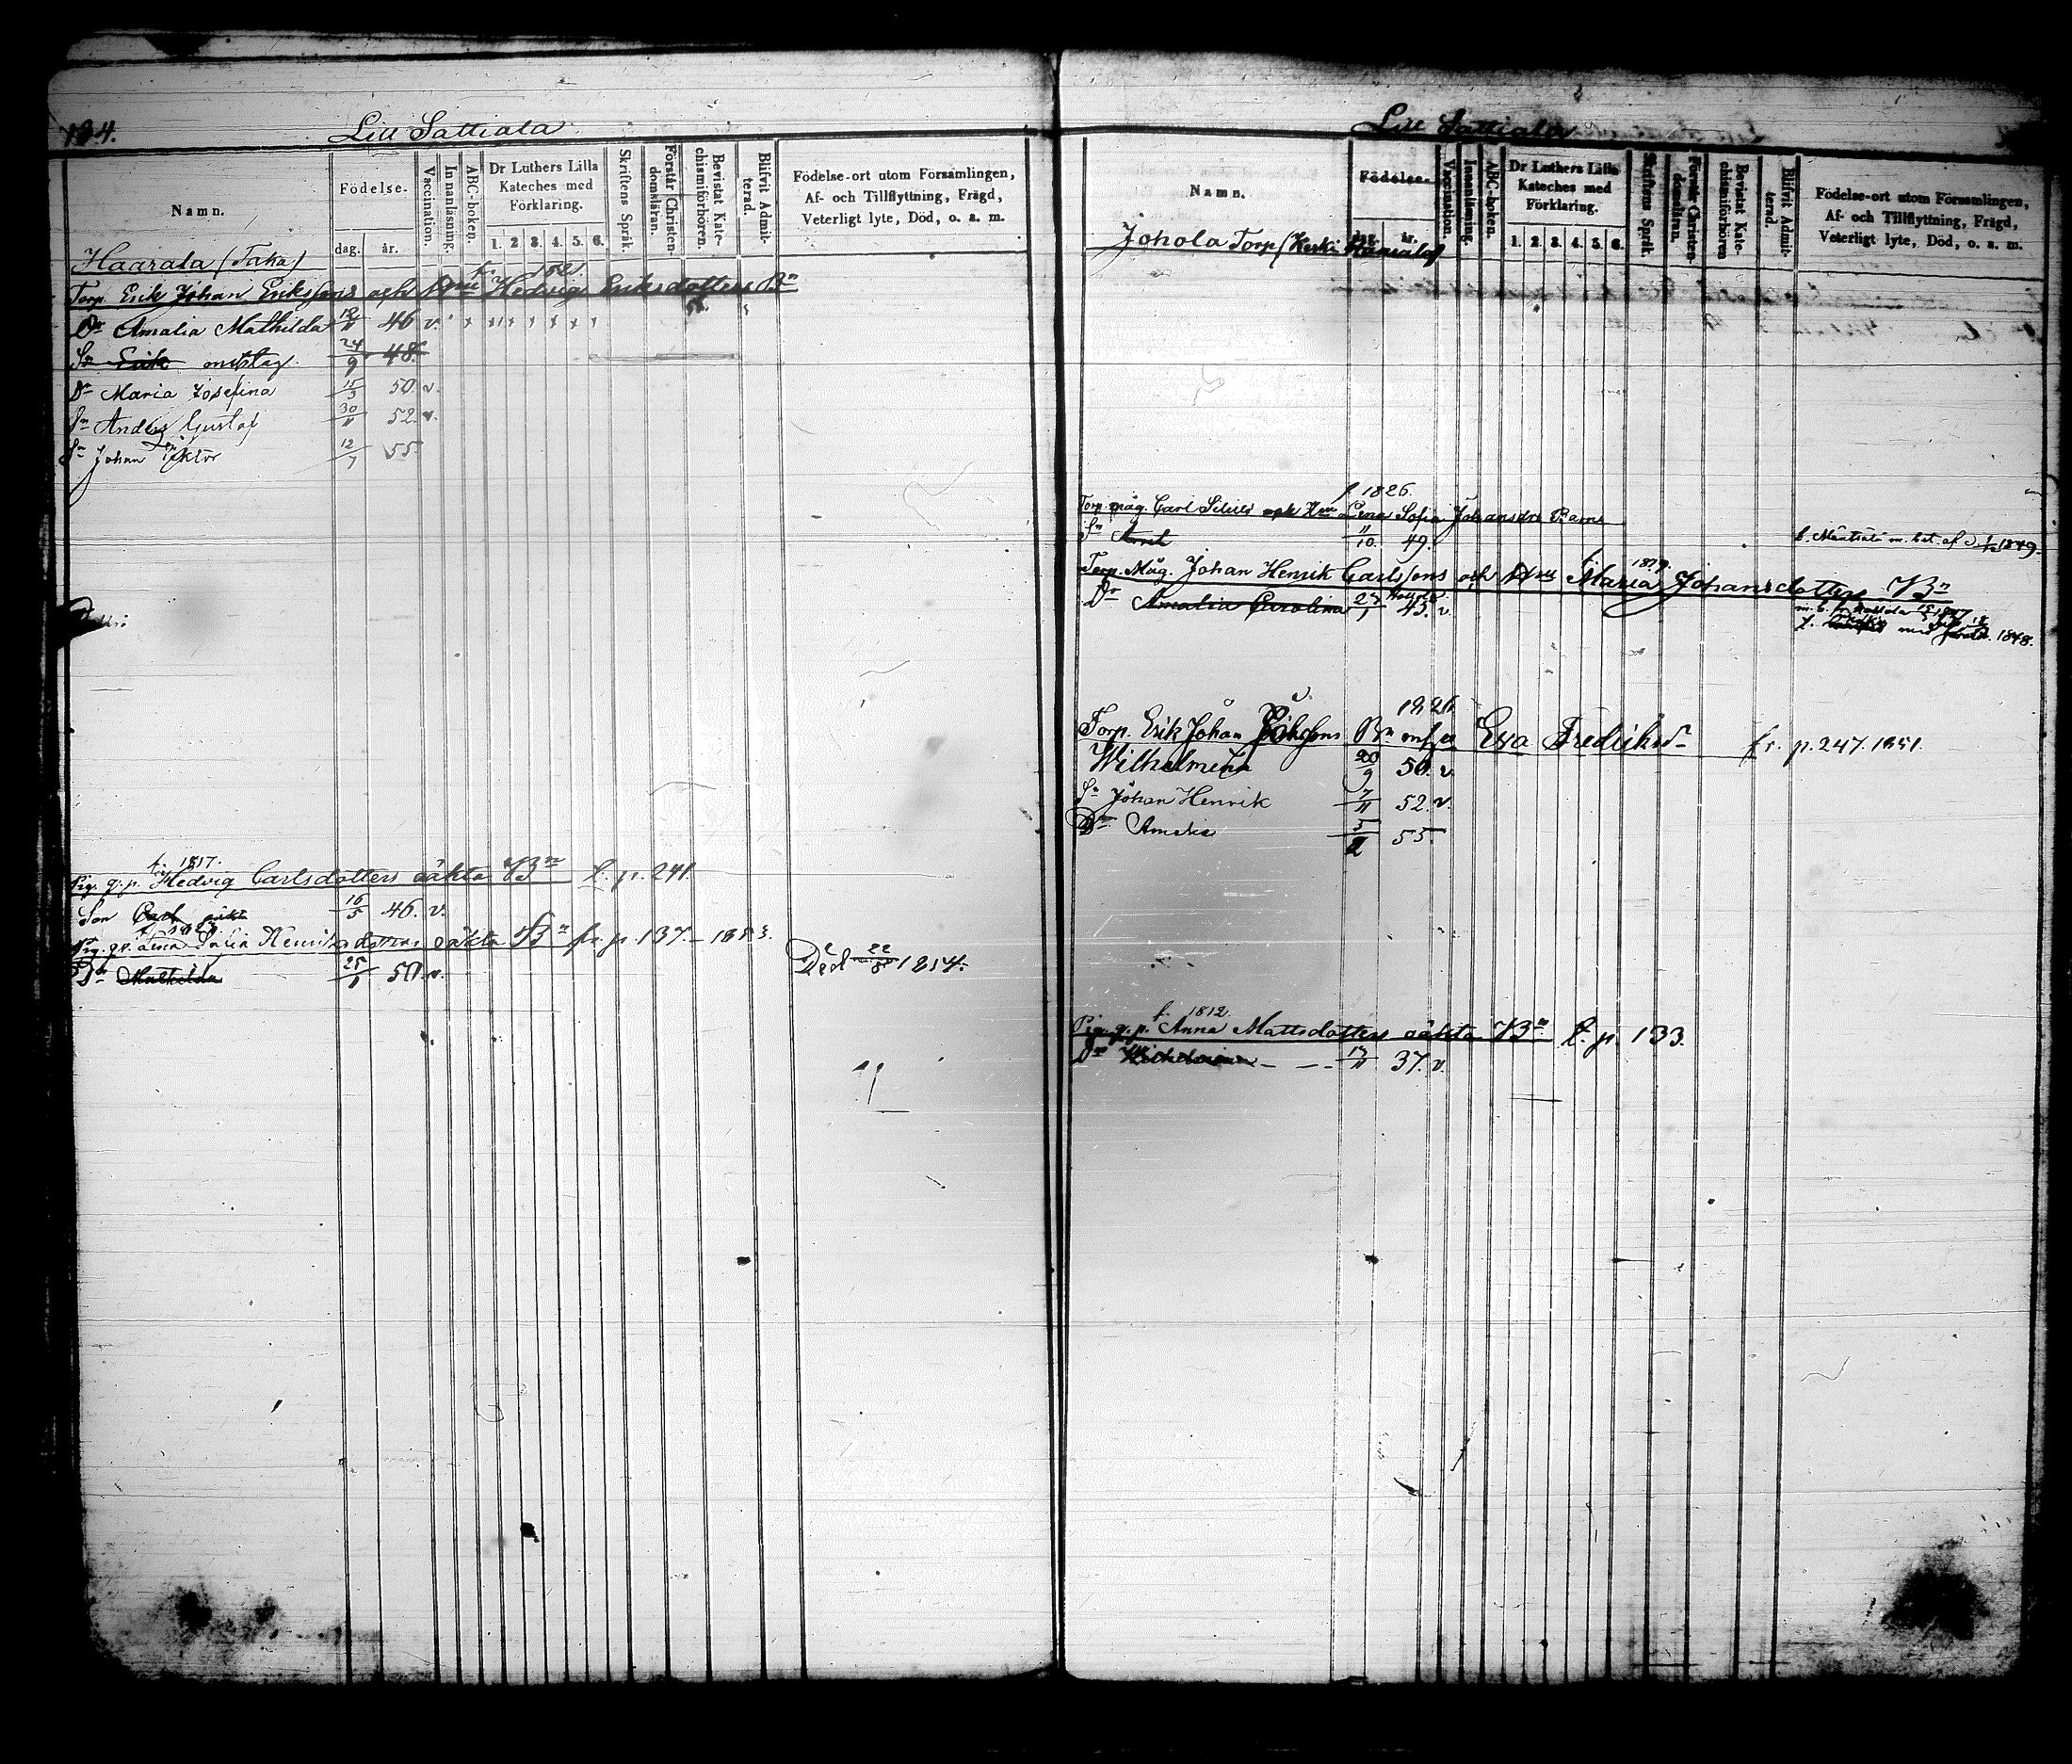 134.
Lill Sattiala
Namn.
Födelse-
dag. år.
Vaccination.
Innanläsning.
ABC-boken.
Dr Luthers Lilla
Kateches med
Förklaring.
1. 2 3. 4. 5. 6.
Skriftens Språk.
Förstår Christen-
domsläran.
Bevistat Kate-
chismiförhören.
Blifvit Admit-
terad.
Födelse-ort utom Församlingen,
Af- och Tillflyttning, Frägd,
Veterligt lyte, Död, o. s. m.
Haarala (Taka)
Torp. Erik Johan Erikssons och Hedvig Eriksdotters Bn
Dr Amalia Mathilda 46 v.
Sn Erik Gustaf 24/9 48.
Dr Maria Josefina 15/3 50. v.
Sn Anders Gustaf 30/11 52. v.
Sn Johan Viktor 12/7 55
f. 1817.
Pig. g.p. Hedvig Carlsdotters oäkta Bn f. p. 241.
Son Carl 16/5 46. v.
Pig. g.p. oäkta Bn fr. p. 137. - 1853.
Dr Mathilda 25/1 50. v. Död 22/8 1854.
Lill Sattiala
Namn.
Födelse-
dag. år.
Vaccination.
Innanläsning.
ABC-boken.
Dr Luthers Lilla
Kateches med
Förklaring.
1. 2. 3. 4. 5. 6.
Skriftens Språk.
Förstår Christen-
domsläran.
Bevistat Kate-
chismiförhören
Blifvit Admit-
terad.
Födelse-ort utom Församlingen,
Af- och Tillflyttning, Frägd,
Veterligt lyte, Död, o. s. m.
Johola Torp (Keski
f. 1826.
Torp. måg. Carl och Lena Sofia Johansdrs Barn
Sn 11/10. 49. 1849.
Torp. Måg. Johan Henrik Carlssons och Maria Johansdotters Bn
Dr Amalia Carolina 27/1 45. v.
1847
1848.
1826
Torp. Erik Johan Bn Eva Fredriksdr fr. p. 247. 1851.
Wilhelmina 20/9 50. v.
Sn Johan Henrik 7/11 52. v.
Dr Amalia 5/2 55.
f. 1812.
Pig. g.p. Anna Mattsdotters oäkta Bn f. p. 133.
Dr Wilhelmina 17/11 37. v.